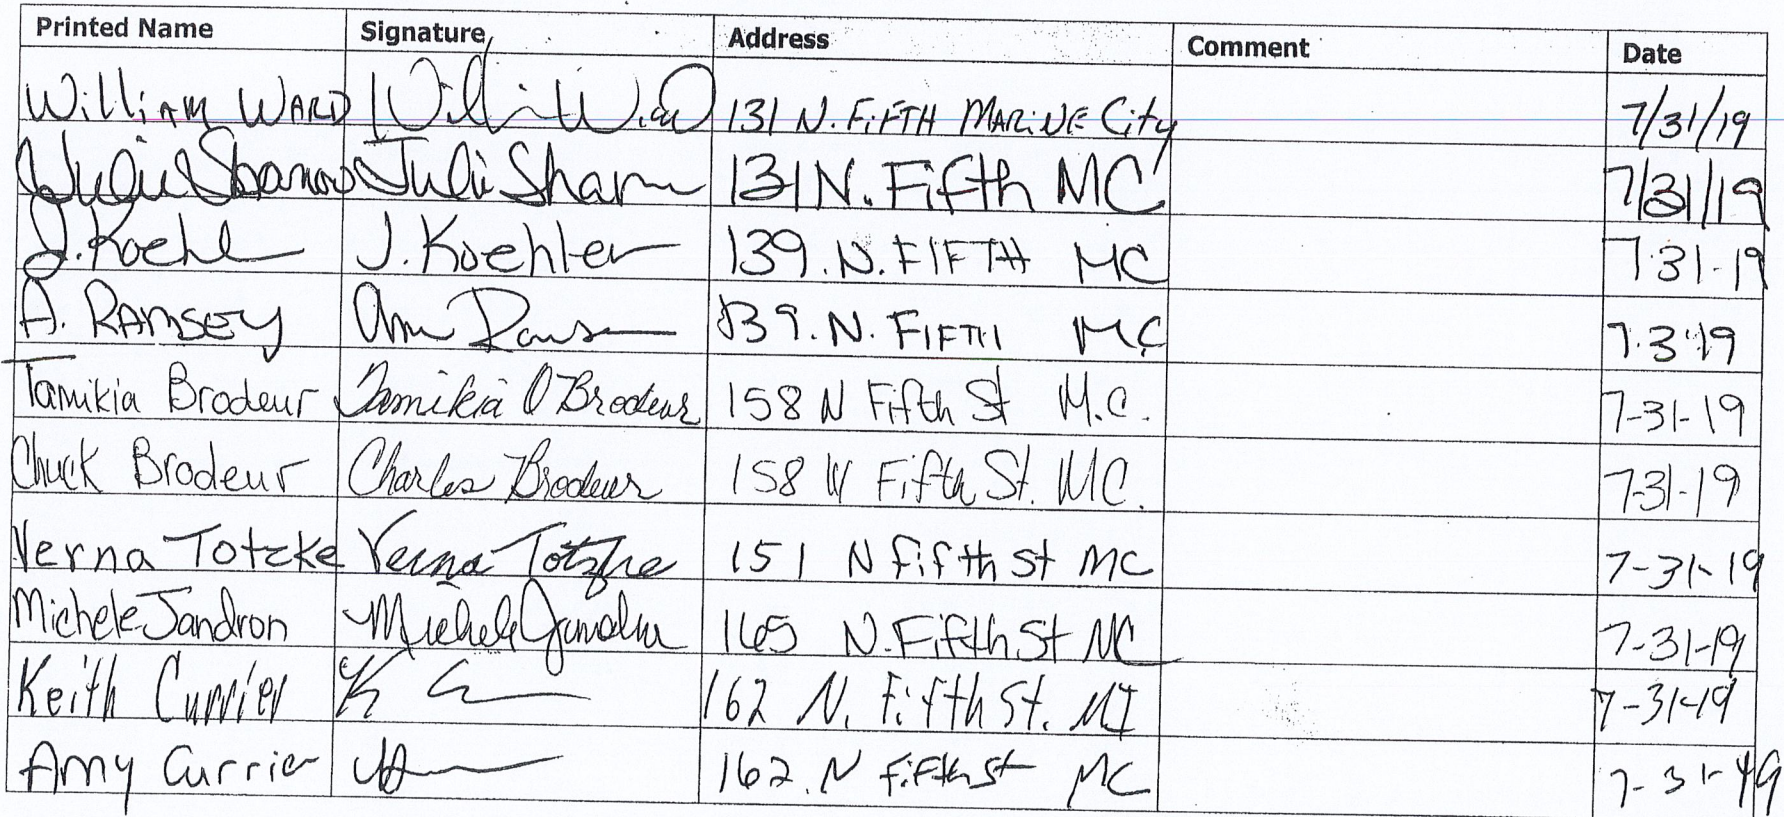 Printed Name Signature Address Comment Date
William Ward William Ward 131 N. Fifth Marine City 7/31/19
Julie Julie 131 N. Fifth MC 7/31/19
J. Koehl J. Koehler 139. N. FIFTH MC 7-31-19
A. RAMSEY Ann 139. N. FIFTH MC 7.31.19
Tamikia Brodeur Tamikia O Brodeur 158 N Fifth St M.C. 7-31-19
Chuck Brodeur Charles Brodeur 158 N Fifth St. MC. 7-31-19
Verna Totzke Verna Totzke 151 N fifth st MC 7-31-19
Michele Jandron Michele Jandron 165 N. Fifth St MC 7-31-19
Keith Currier K 162 N. Fifth St. MI 7-31-19
Amy Currier 162. N fifth st MC 7-31-19